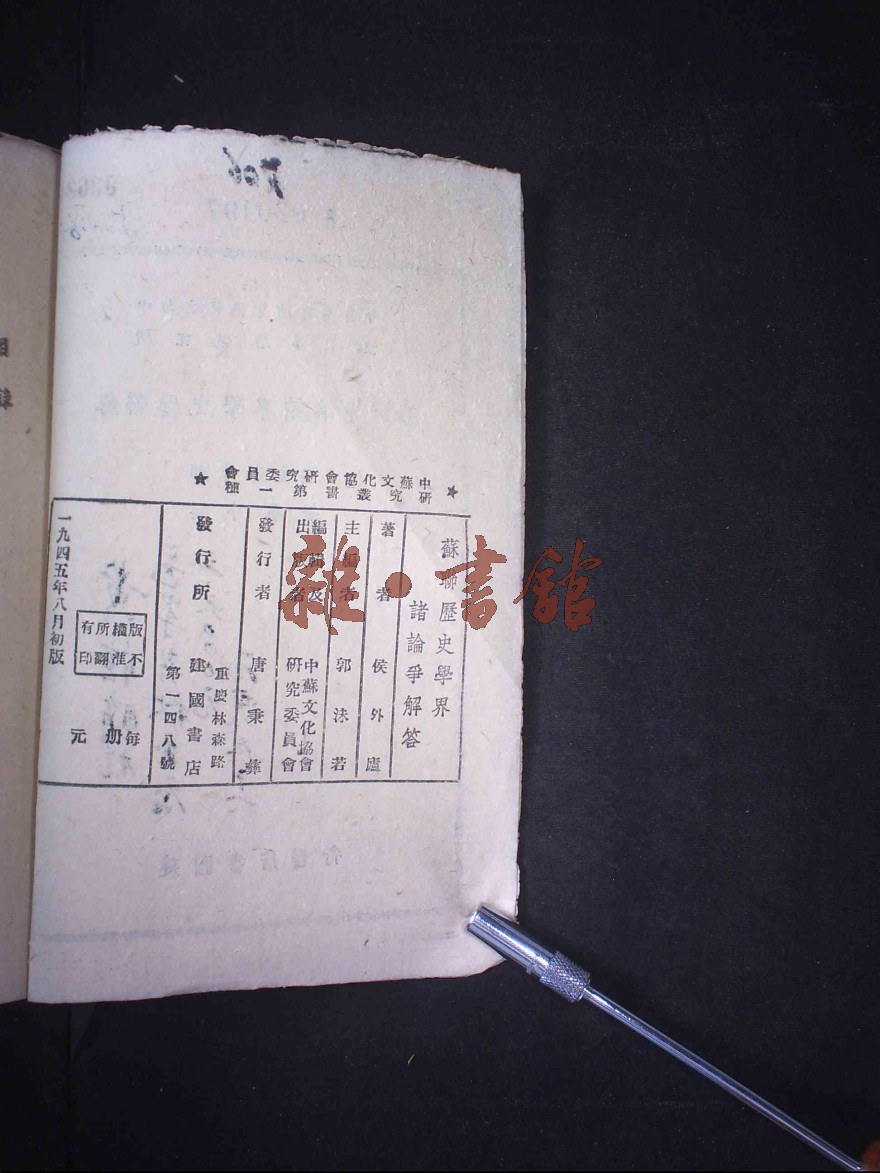 中蘇文化協會研究委員會
研究叢書第一種
蘇聯歷史學界
諸論爭解答
著者 侯外廬
主編者 郭沫若
編輯及出版者 中蘇文化協會研究委員會
發行者 唐秉彝
發行所 建國書店
重慶林森路
第一四八號
版權所有
不准翻印
每冊 元
一九四五年八月初版
雜·書館